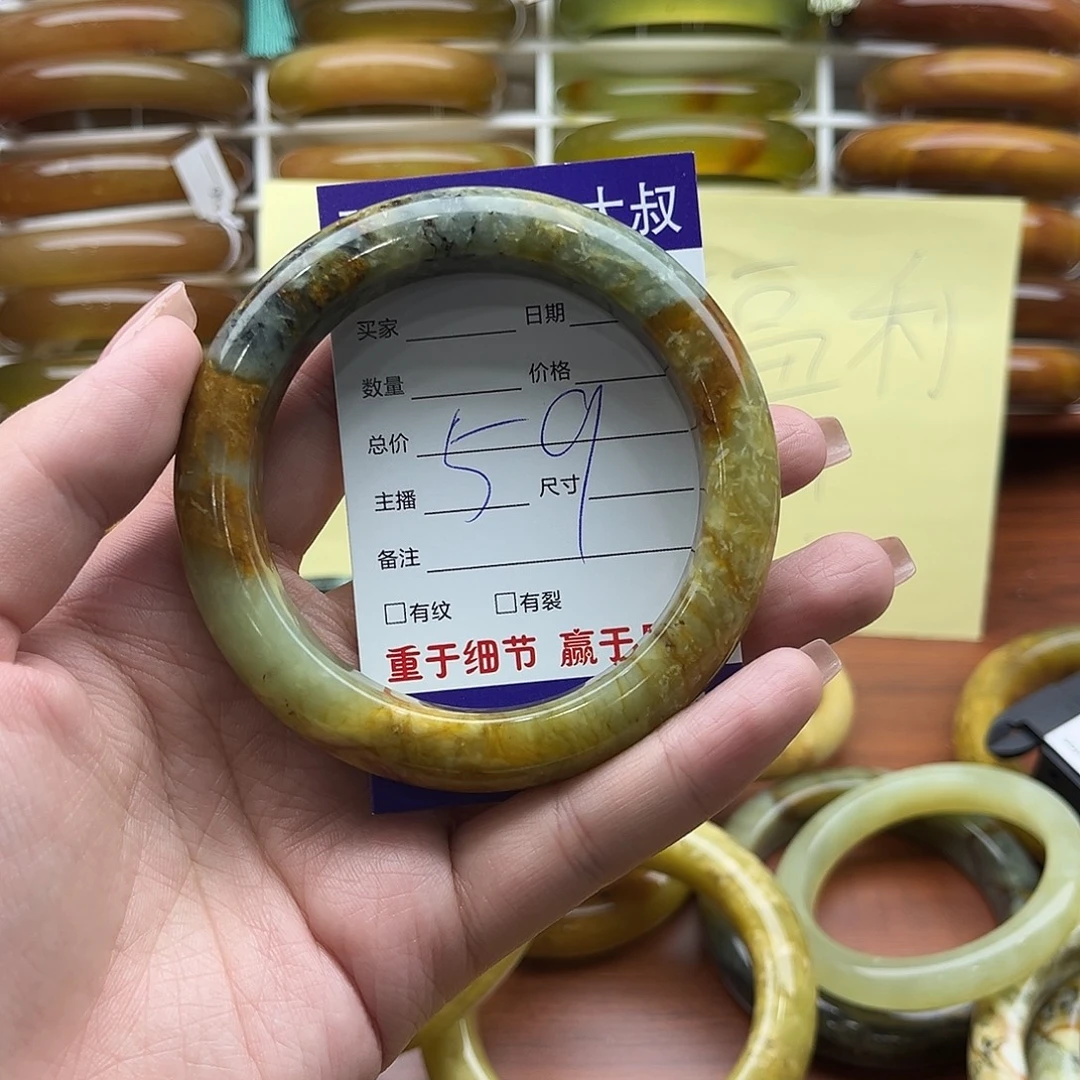 大叔
福利
买家
日期
数量
价格
总价
59
主播
尺寸
备注
□有纹 □有裂
重于细节 赢于